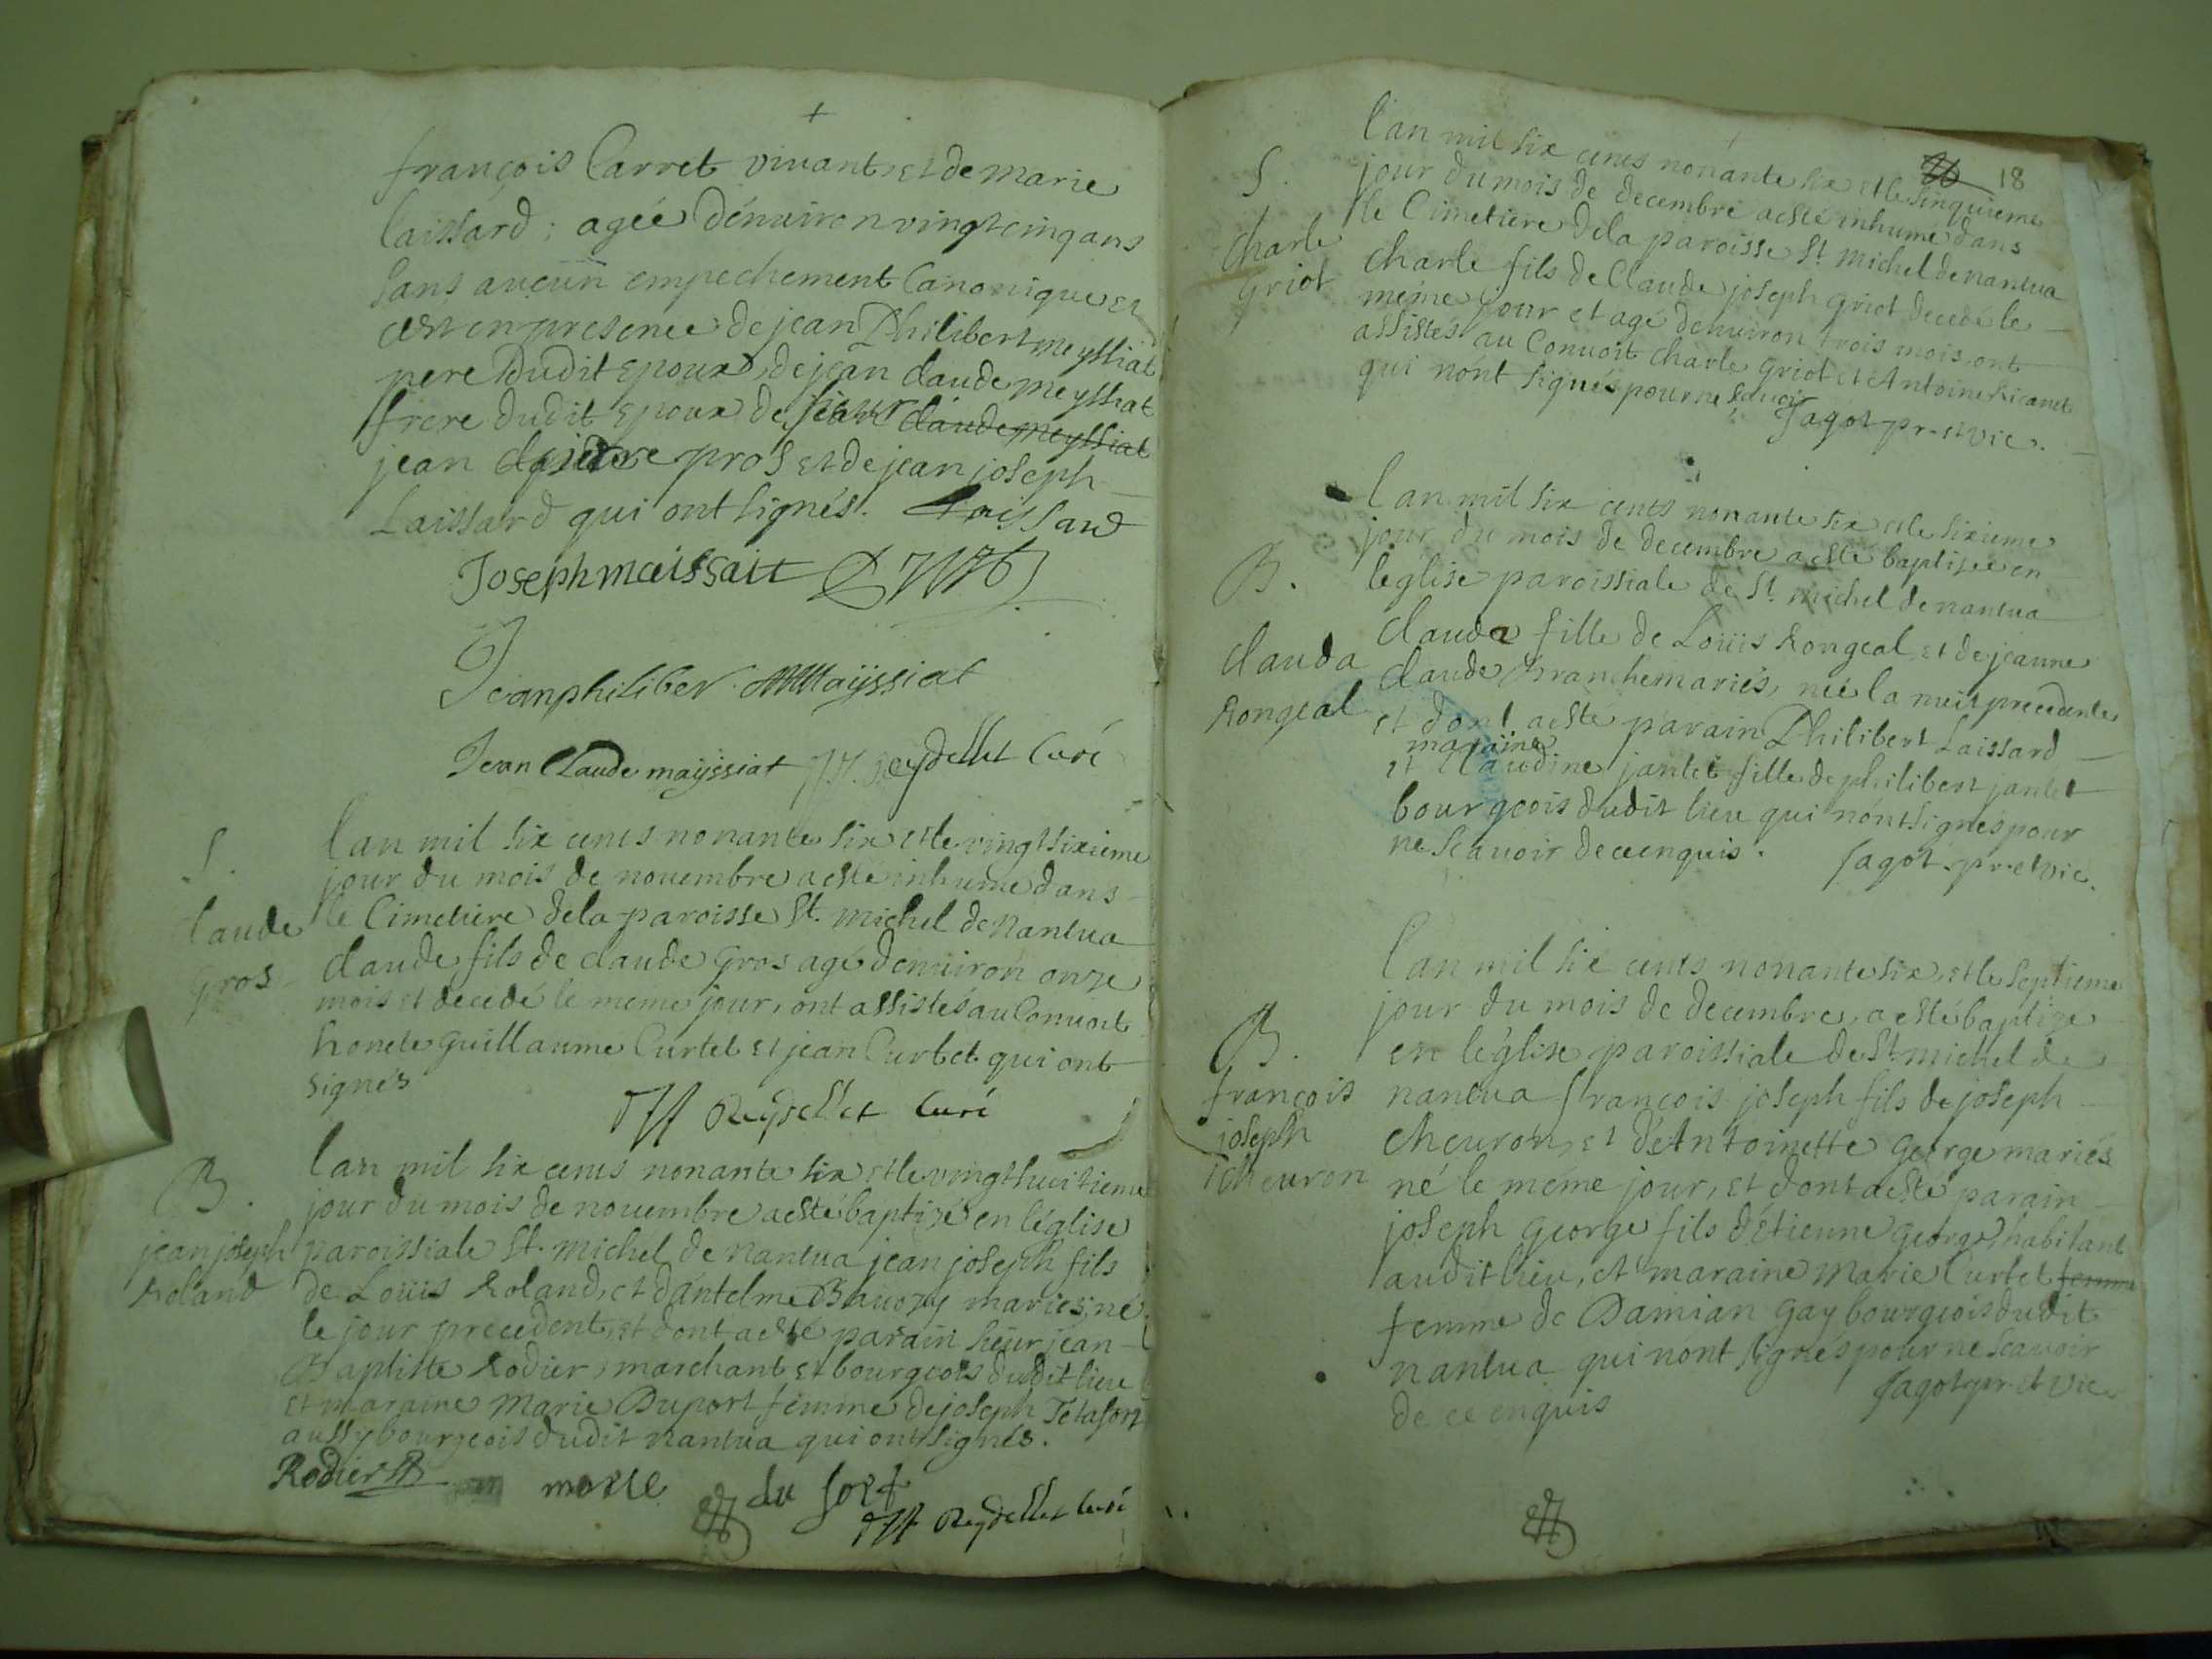 françois Carret vivant, et de marie
laissard ; agée d'énuiron vingt cinq ans
sans aucun empechement Canonique et
en presence de jean Philibert meyssiat
pere dudit epoux, de jean claude meyssiat
frere dudit epoux de claude meyssiat
jean pros et de jean joseph
Laissard qui ont signés. Laissard
Joseph maissait
Jeanphiliber Mayssiat
Jean Claude mayssiat JH Reydellet Curé
S.
Claude
gros
l'an mil six cents nonante six et le vingt sixieme
jour du mois de nouembre a esté inhumé dans
le Cimetiere de la paroisse St. michel de Nantua
claude fils de claude gros agé denuiron onze
mois et decedé le meme jour, ont assistés au Conuoit
honete guillaume Curtet et jean Curtet qui ont
signés
JH Reydellet Curé
B.
jean joseph
Roland
l'an mil six cents nonante six et le vingt huitieme
jour du mois de nouembre a esté baptizé en l'église
paroissiale St. michel de nantua jean joseph fils
de Loüis Roland, et d'antelme Bauozy mariés, né
le jour precedent, et dont a esté parain sieur jean
Baptiste Rodier, marchant et bourgeois dudit lieu
et maraine Marie Duport femme de joseph Tetafort
aussy bourgeois dudit nantua qui ont signés.
Rodier marie du fort
JH Reydellet Curé
18
S.
Charle
griot
l'an mil six cents nonante six et le sinquieme
jour du mois de decembre a esté inhumé dans
le Cimetiere de la paroisse St. michel de nantua
charle fils de Claude joseph griot decedé le
méme jour et agé denuiron trois mois ont
assistés au Conuoit charle griot et Antoine Ricanet
qui n'ont signés pour ne sauoir
Sagot pr. et vic.
B.
clauda
Rongeal
l'an mil six cents nonante six et le sixieme
jour du mois de decembre a esté baptisée en
leglise paroissiale de St. michel de nantua
clauda fille de Loüis Rongeal et de jeanne
claude mariés, née la nuit precedente
et dont a esté parain Philibert Laissard
maraine
et Claudine jantet fille de philibert jantet
bourgeois dudit lieu qui n'ont signés pour
ne scauoir de ce enquis. Sagot pr. et vic.
B.
françois
joseph
Cheuron
l'an mil six cents nonante six, et le septieme
jour du mois de decembre, a esté baptize
en l'église paroissiale de St. michel de
nantua françois joseph fils de joseph
cheuron, et d'Antoinette george mariés
né le méme jour, et dont a esté parain
joseph george fils d'étienne george, habitant
audit lieu, et maraine marie Curtet femme
femme de Damian gay bourgeois dudit
nantua qui n'ont signés pour ne scauoir
de ce enquis Sagot pr. et vic.